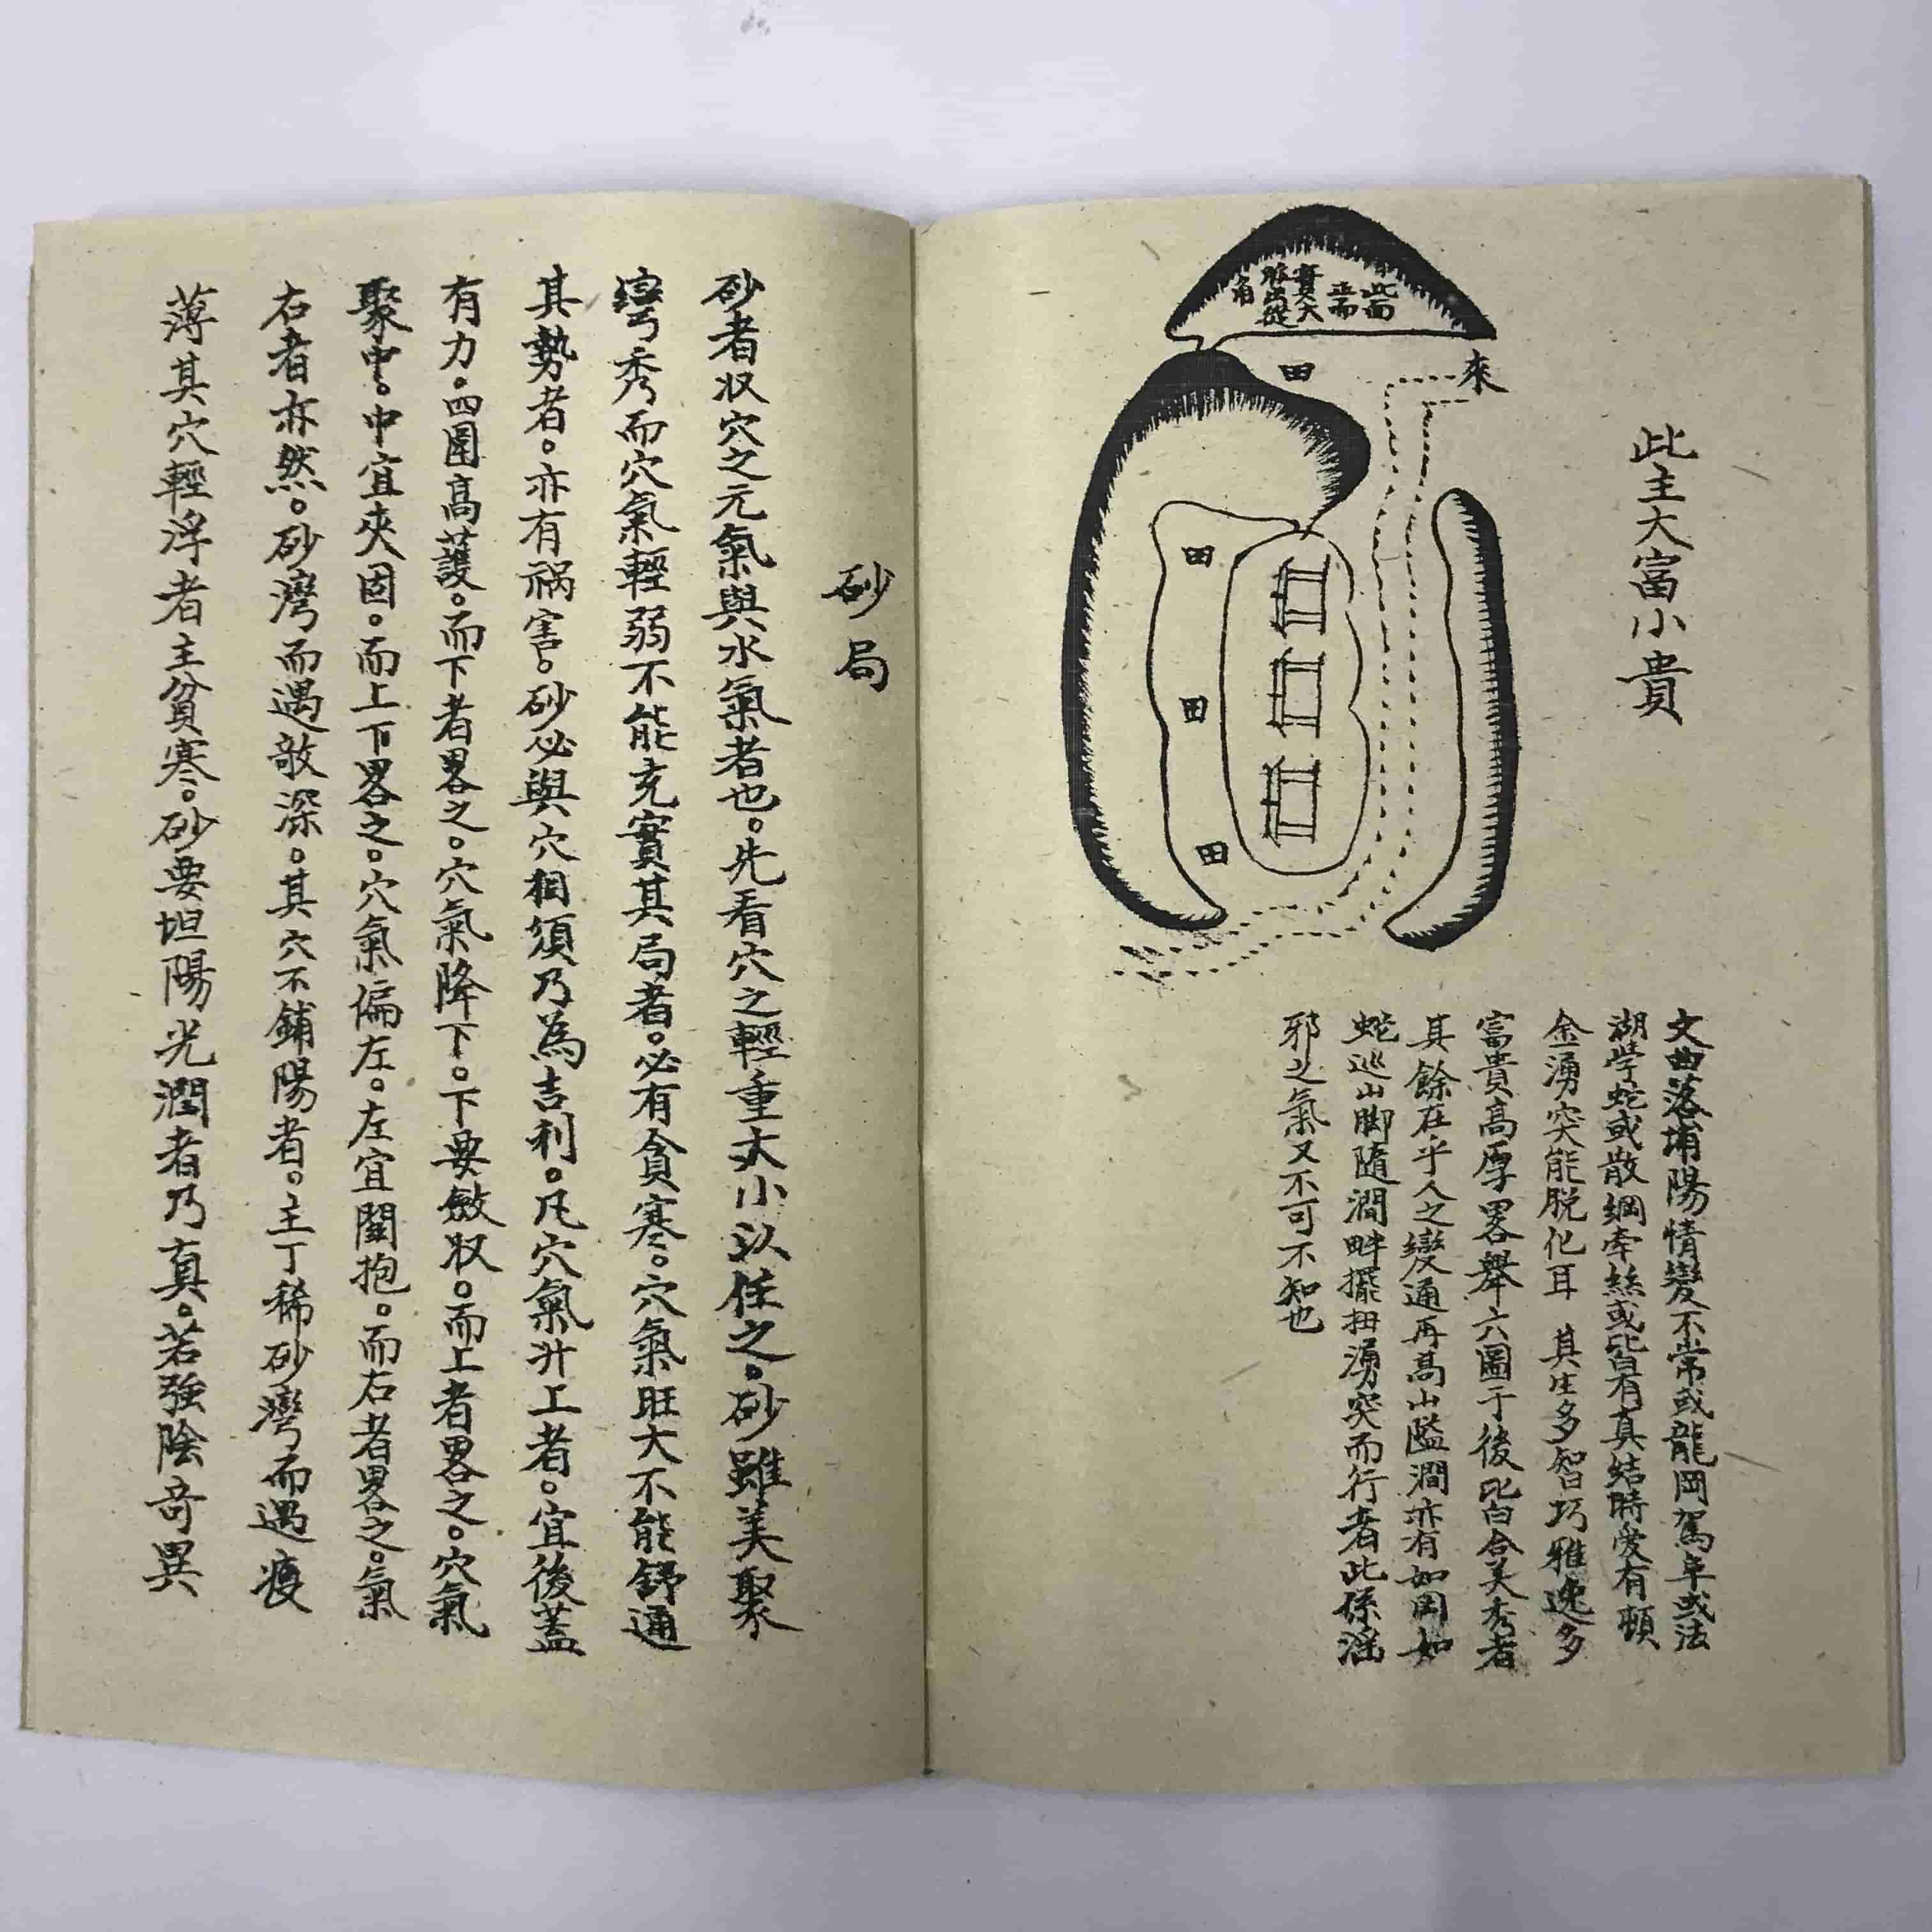 此主大富小貴
此面
正而
實大
脈出從
角
來
田
田
田
田
文曲落埔陽情變不常或龍岡駕阜或法
湖学蛇或散綱牽絲或皆有真結時爱有頓
金湧突能脱化耳 其生多智巧雅逸多
富貴高厚畧舉六圖于後皆合美秀者
其餘在乎人之變通再高山隘澗亦有如岡如
蛇巡山脚隨澗畔擺扭湧突而行者此係滛
邪之氣又不可不知也
砂局
砂者収穴之元氣與水氣者也。先看穴之輕重大小以任之。砂雖美聚
灣秀而穴氣輕弱不能充實其局者。必有貪寒。穴氣旺大不能舒通
其勢者。亦有禍害。砂必與穴相須乃為吉利。凡穴氣升上者。宜後蓋
有力。四圍高護。而下者畧之。穴氣降下。下要斂収。而上者畧之。穴氣
聚中。中宜夾固。而上下畧之。穴氣偏左。左宜關抱。而右者畧之。氣
右者亦然。砂灣而遇敵深。其穴不鋪陽者。主丁稀砂灣而遇瘦
薄其穴輕浮者主貧寒。砂要坦陽光潤者乃真。若強陰奇異